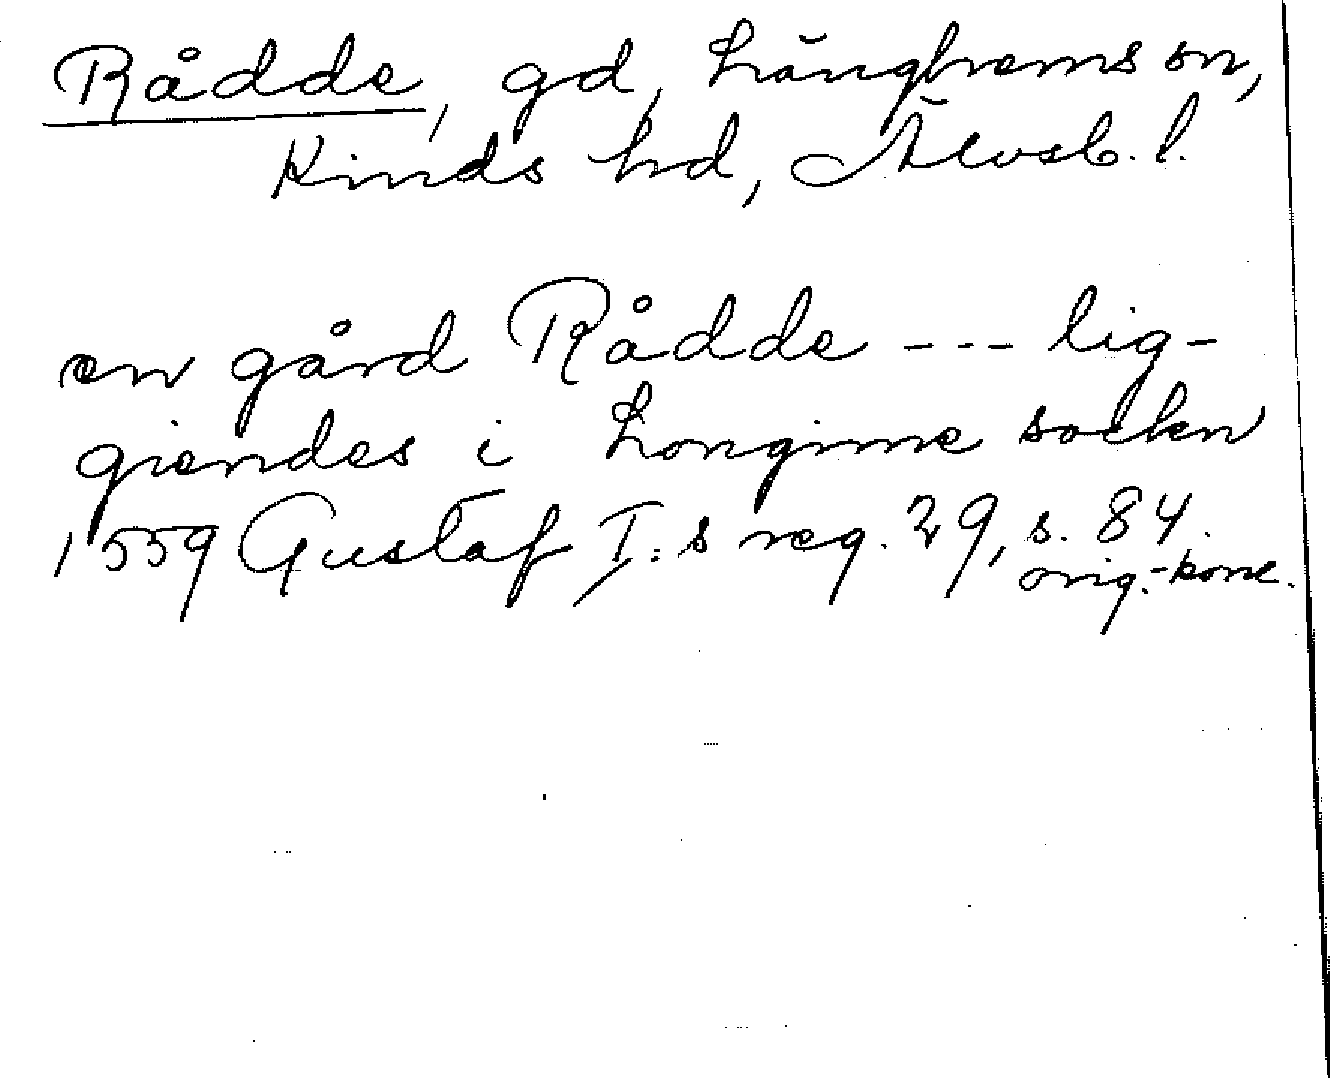 Rådde, gd, Länghems sn,
Kinds hd, Älvsb. l.
en gård Rådde --- lig-
giendes i Longime sockn
1559 Gustaf I:s reg. 29, s. 84.
orig.-konc.